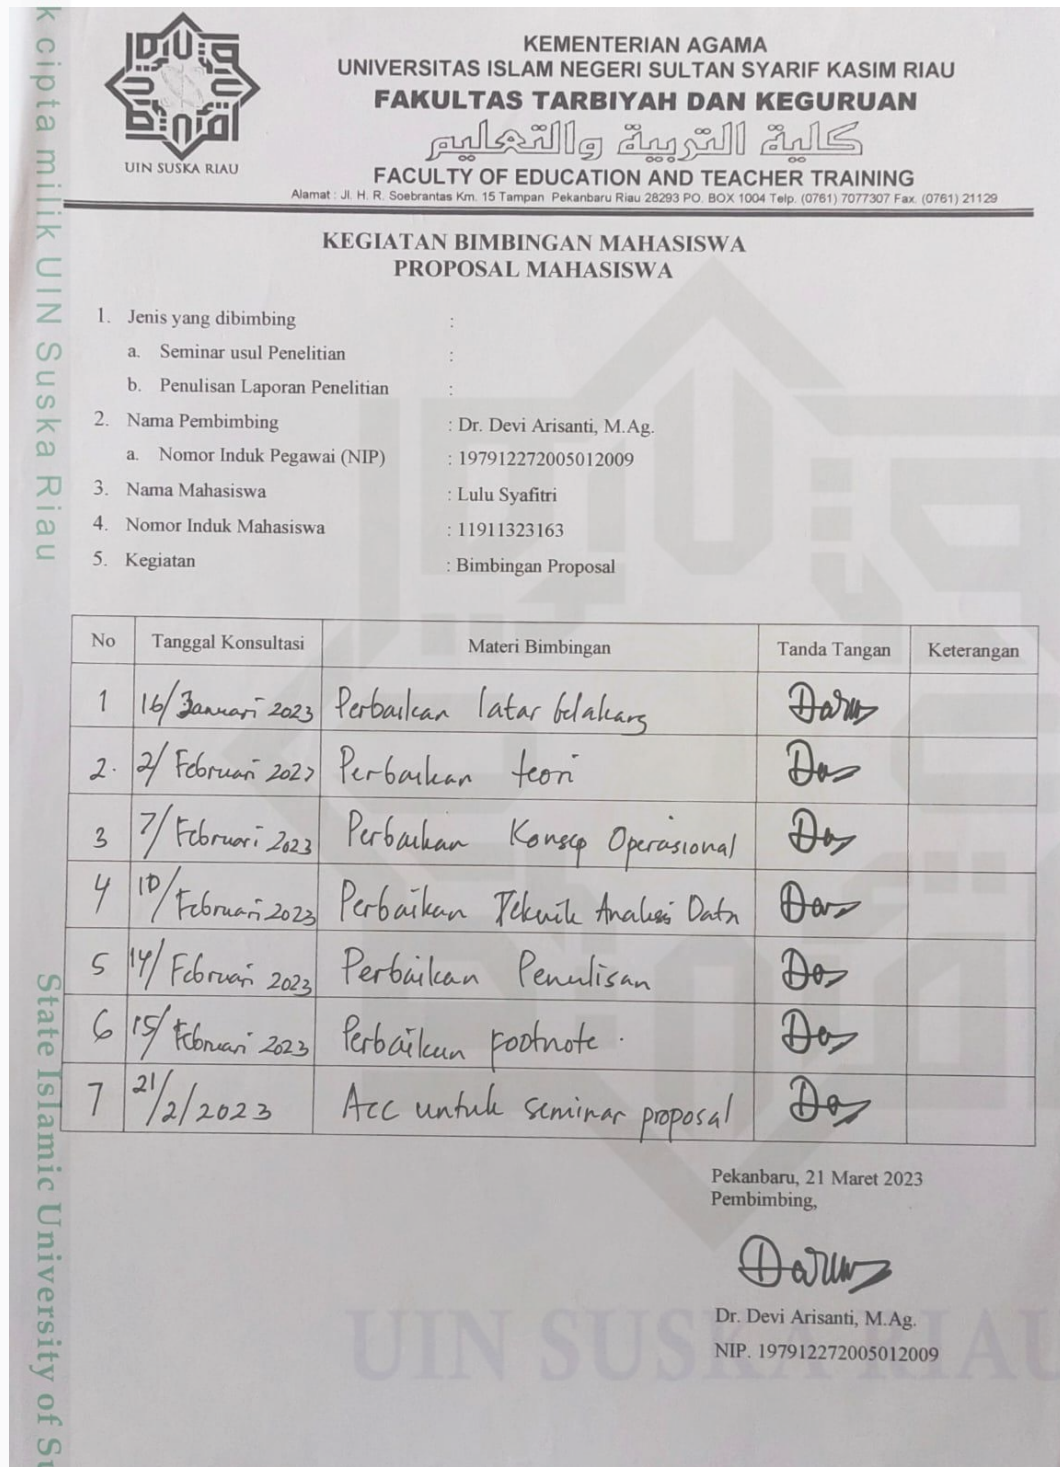 k cipta milik UIN Suska Riau
State Islamic University of Su
UIN SUSKA RIAU
KEMENTERIAN AGAMA
UNIVERSITAS ISLAM NEGERI SULTAN SYARIF KASIM RIAU
FAKULTAS TARBIYAH DAN KEGURUAN
كلية التربية والتعليم
FACULTY OF EDUCATION AND TEACHER TRAINING
Alamat : Jl. H. R. Soebrantas Km. 15 Tampan Pekanbaru Riau 28293 PO. BOX 1004 Telp. (0761) 7077307 Fax. (0761) 21129
KEGIATAN BIMBINGAN MAHASISWA
PROPOSAL MAHASISWA
1. Jenis yang dibimbing :
a. Seminar usul Penelitian :
b. Penulisan Laporan Penelitian :
2. Nama Pembimbing : Dr. Devi Arisanti, M.Ag.
a. Nomor Induk Pegawai (NIP) : 197912272005012009
3. Nama Mahasiswa : Lulu Syafitri
4. Nomor Induk Mahasiswa : 11911323163
5. Kegiatan : Bimbingan Proposal
No Tanggal Konsultasi Materi Bimbingan Tanda Tangan Keterangan
1 16/Januari 2023 Perbaikan latar belakang
2. 2/ Februari 2023 Perbaikan teori
3 7/ Februari 2023 Perbaikan Konsep Operasional
4 10/ Februari 2023 Perbaikan Teknik Analisis Data
5 14/ Februari 2023 Perbaikan Penulisan
6 15/ Februari 2023 Perbaikan footnote.
7 21/2/2023 Acc untuk seminar proposal
Pekanbaru, 21 Maret 2023
Pembimbing,
Dr. Devi Arisanti, M.Ag.
NIP. 197912272005012009
UIN SUSKA RIAU